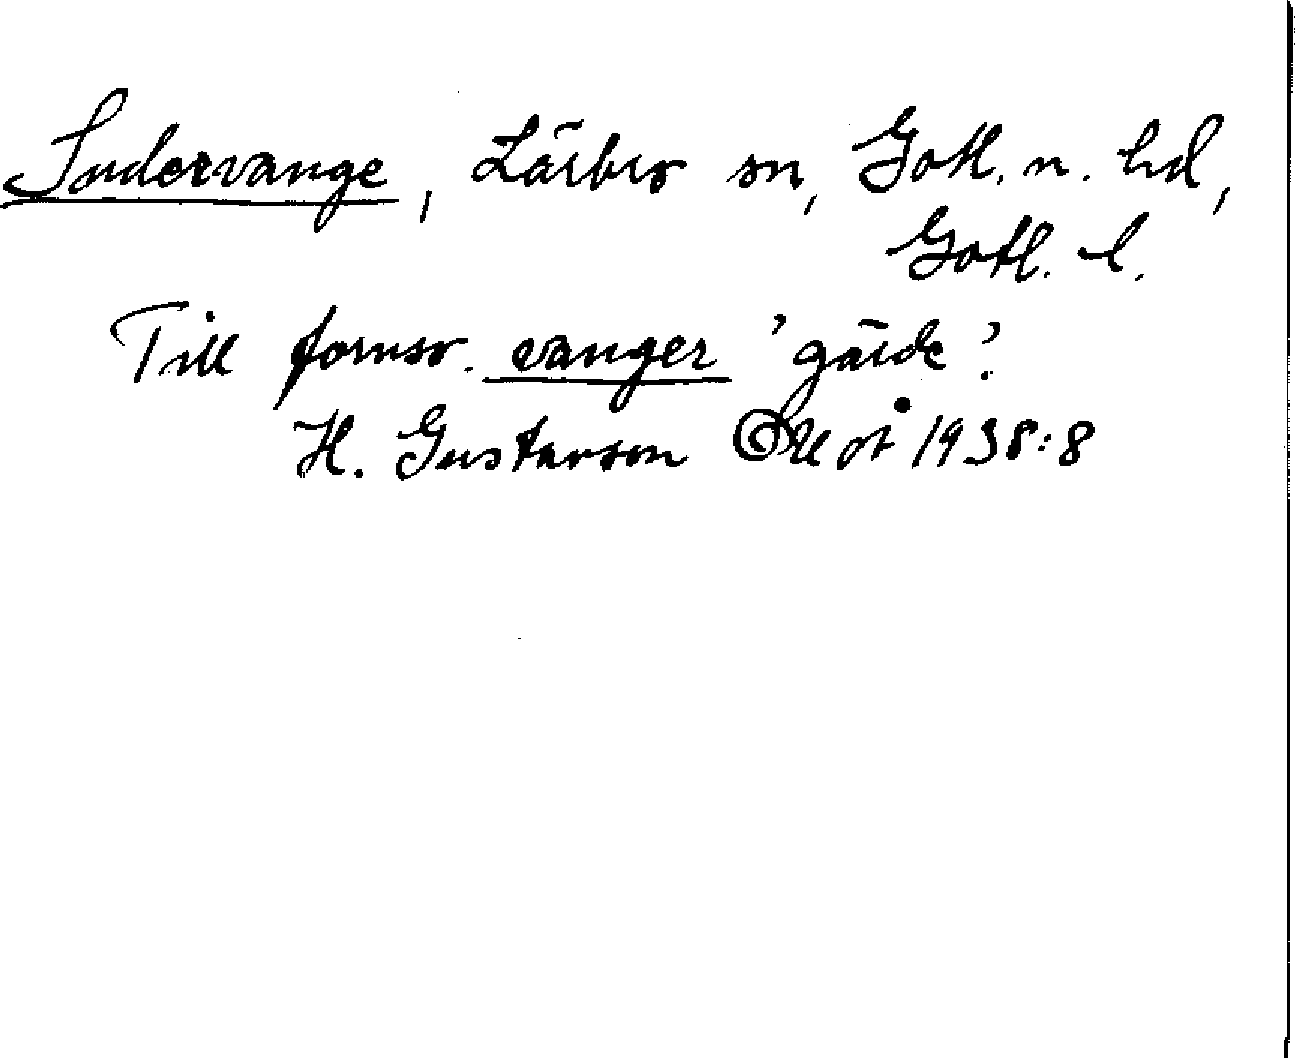 Sudervange, Lärbro sn, Gotl. n. hd,
Gotl. l.
Till fornsv. vanger 'gärde'.
H. Gustavson 1938:8